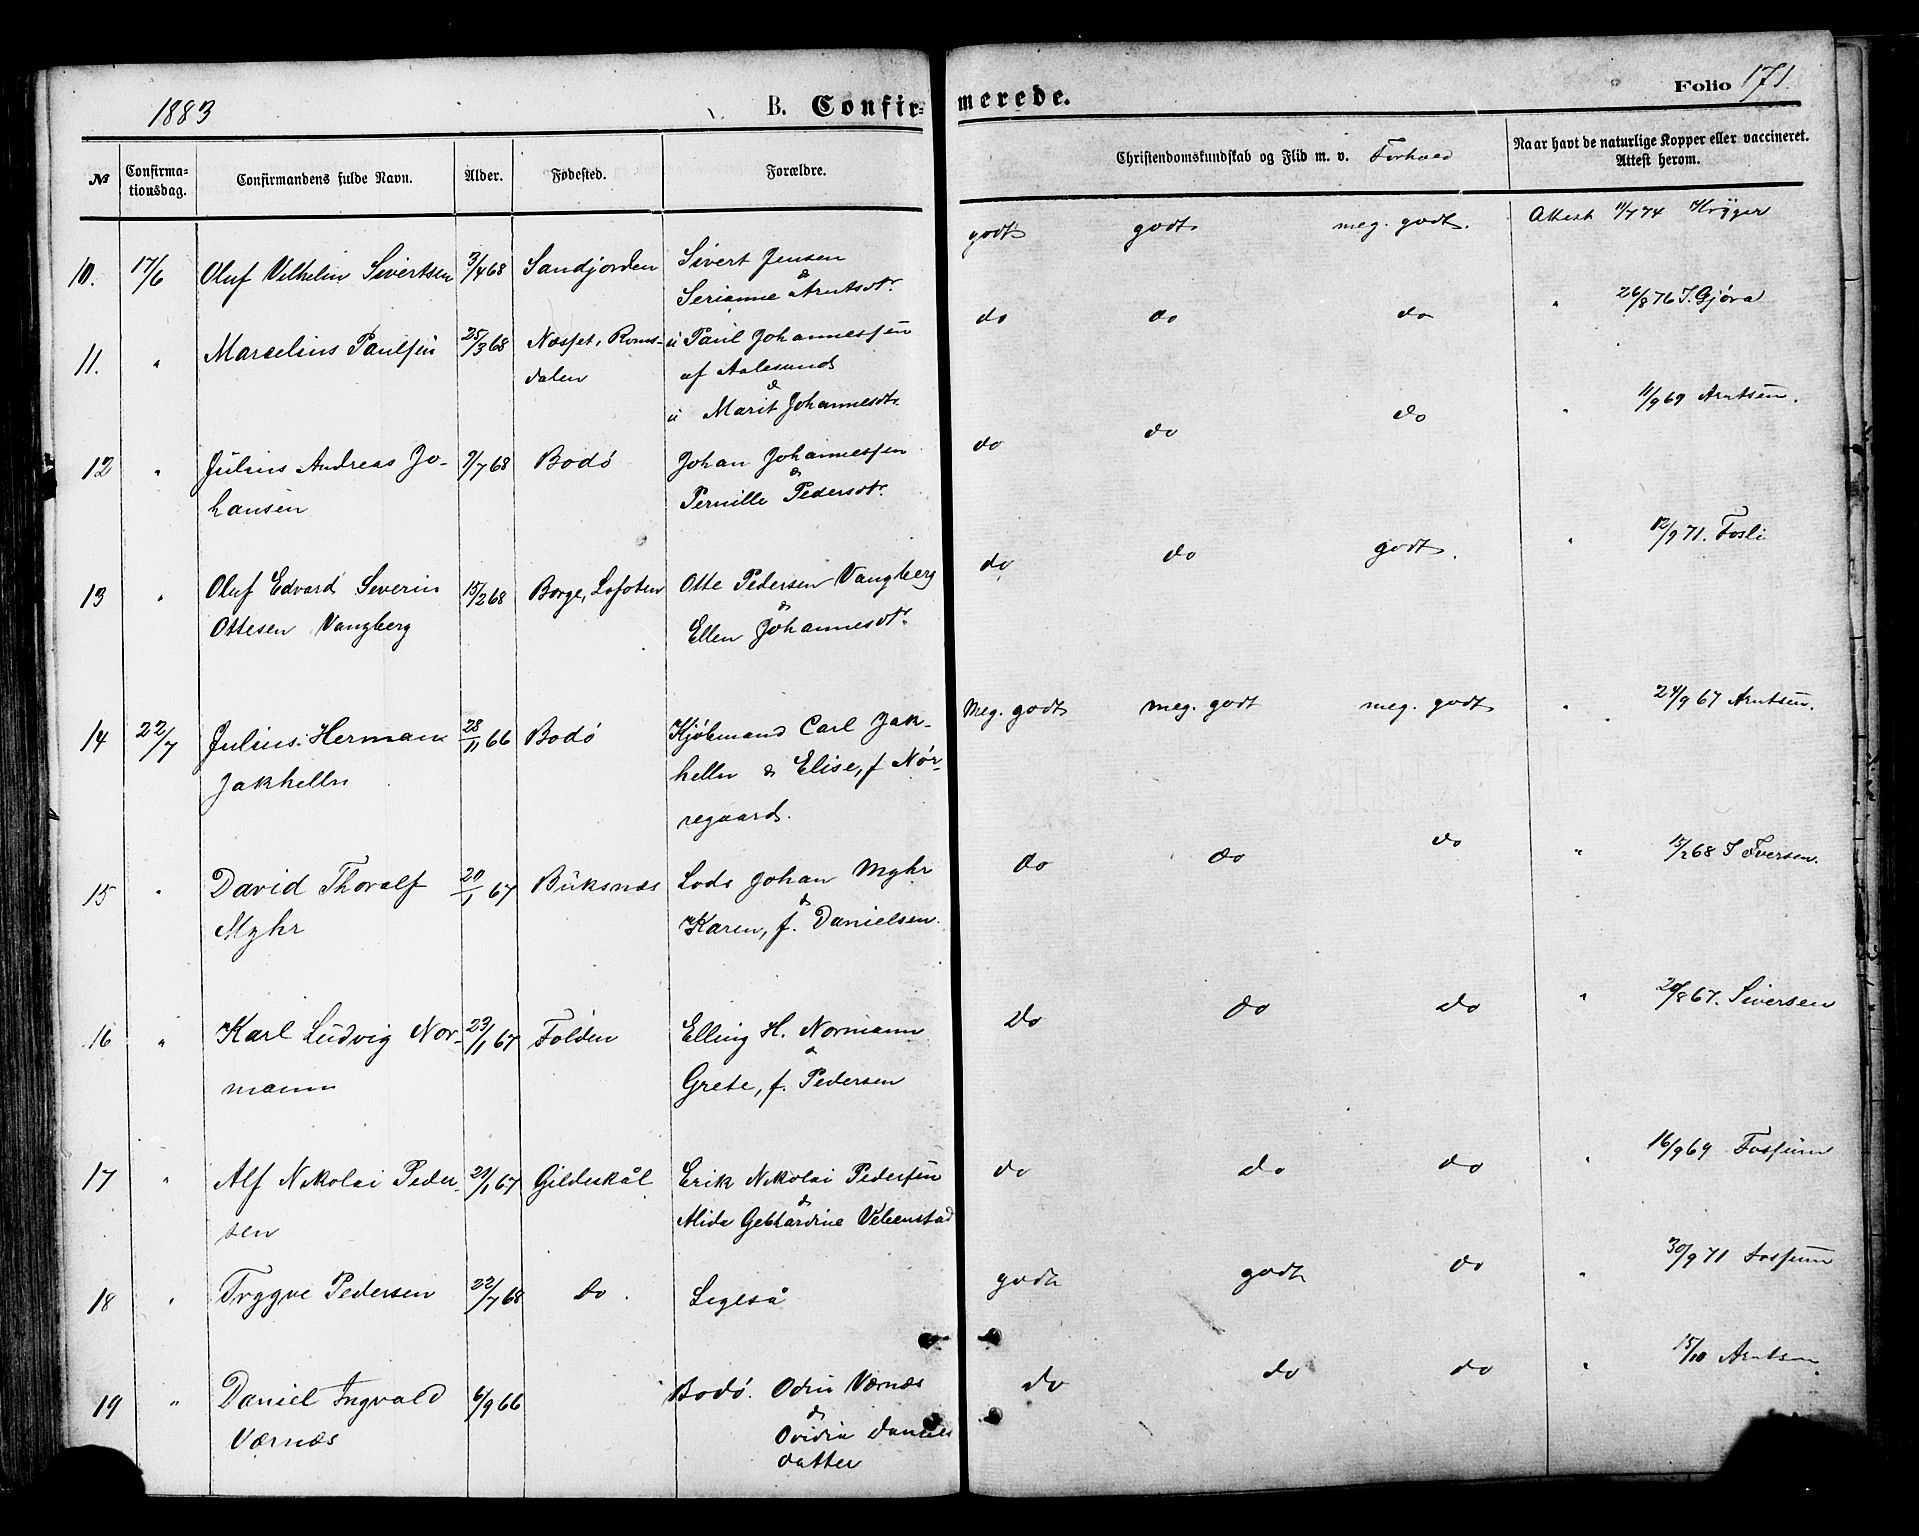 1883 B. Confirmerede. Folio 171.
№ Confirmationsdag. Confirmandens fulde Navn. Alder. Fødested. Forældre. Christendomskundskab og Flid m. v. Forhold Naar havt de naturlige Kopper eller vaccineret. Attest herom.
10. 17/6 Oluf Vilhelm Sivertsen 3/4 68 Sandjorden Sivert Jensen godt godt meg. godt. Attest 11/7 74 Krÿger
& Serianne Arntsdtr.
11. " Marselius Paulsen 25/3 68 Næsset, Roms- u Paul Johannessen do do do " 26/8 76 I. Gjøra
dalen af Aalesund
& u Marit Johannesdtr
12 " Julius Andreas Jo- 9/7 68 Bodø Johan Johannessen do do do " 11/9 69 Arntsen.
hansen & Pernille Pedersdtr.
13 " Oluf Edvard Severin 15/2 68 Borge, Lofoten Otte Pedersen Vangberg do do godt. " 12/9 71. Fosli
Ottesen Vangberg & Ellen Johannesdtr.
14 22/7 Julius Herman 28/11 66 Bodø Kjøbmand Carl Jak- Meg. godt meg. godt meg. godt " 24/9 67 Arntsen.
Jakhelln helln & Elise, f Nør-
regaard.
15 " David Thoralf 20/1 67 Buksnæs Lods Johan Myhr do do do " 15/2 68 I Iversen.
Myhr & Karen, f. Danielsen.
16 " Karl Ludvig Nor- 23/1 67 Folden Elling H. Normann do do do " 20/8 67. Siversen
mann & Grete, f. Pedersen
17 " Alf Nikolai Peder- 29/1 67 Gildeskål Erik Nikolai Pedersen do do do " 16/9 69 Fossum
sen & Alida Gebhardine
18 " Tryggve Pedersen 22/7 68 do. Ligeså godt godt do " 30/9 71 Fossum
19 " Daniel Ingvald 6/9 66 Bodø. Odin Værnæs do do do " 15/10 Arntsen
Værnæs & Ovidia Daniels
datter